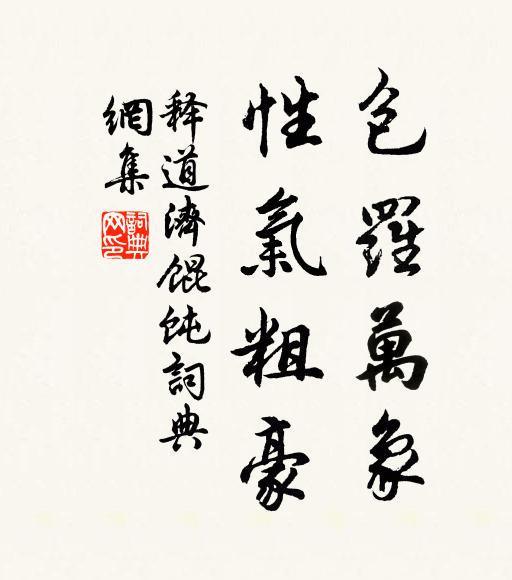 包羅萬象
性氣粗豪
释道濟餛飩詞典
網集
詞典網印